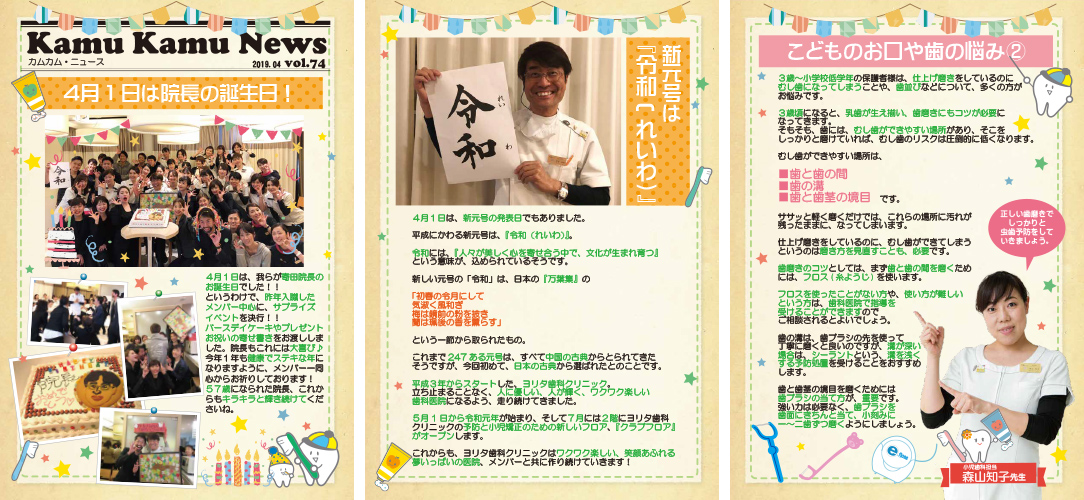 Kamu Kamu News
カムカム・ニュース
2019.04 vol.74
4月1日は院長の誕生日！
令和
4月1日は、我らが寄田院長の
お誕生日でした！！
というわけで、昨年入職した
メンバー中心に、サプライズ
イベントを決行！！
バースデイケーキやプレゼント
お祝いの寄せ書きをお渡ししま
した。院長もこれには大喜び♪
今年1年も健康でステキな年に
なりますように、メンバー一同
心からお祈りしております！
57歳になられた院長、これか
らもキラキラと輝き続けてくだ
さいね。
新元号は
『令和（れいわ）』
令和
れい
わ
4月1日は、新元号の発表日でもありました。
平成にかわる新元号は、『令和（れいわ）』。
令和には、『人々が美しく心を寄せ合う中で、文化が生まれ育つ』
という意味が、込められているそうです。
新しい元号の「令和」は、日本の『万葉集』の
「初春の令月にして
気淑く風和ぎ
梅は鏡前の粉を披き
蘭は珮後の香を薫らす」
という一節から取られたもの。
これまで247ある元号は、すべて中国の古典からとられてきた
そうですが、今回初めて、日本の古典から選ばれたとのことです。
平成3年からスタートした、ヨリタ歯科クリニック。
立ち止まることなく、人に優しい、人が輝く、ワクワク楽しい
歯科医院になるよう、走り続けてきました。
5月1日から令和元年が始まり、そして7月には2階にヨリタ歯科
クリニックの予防と小児矯正のための新しいフロア、『クラブフロア』
がオープンします。
これからも、ヨリタ歯科クリニックはワクワク楽しい、笑顔あふれる
夢いっぱいの医院、メンバーと共に作り続けていきます！
こどものお口や歯の悩み②
3歳～小学校低学年の保護者様は、仕上げ磨きをしているのに
むし歯になってしまうことや、歯並びなどについて、多くの方が
お悩みです。
3歳頃になると、乳歯が生え揃い、歯磨きにもコツが必要に
なってきます。
そもそも、歯には、むし歯ができやすい場所があり、そこを
しっかりと磨けていれば、むし歯のリスクは圧倒的に低くなります。
むし歯ができやすい場所は、
■歯と歯の間
■歯の溝
■歯と歯茎の境目 です。
ササッと軽く磨くだけでは、これらの場所に汚れが
残ったままに、なってしまいます。
仕上げ磨きをしているのに、むし歯ができてしまう
というのは磨き方を見直すことも、必要です。
歯磨きのコツとしては、まず歯と歯の間を磨くため
には、フロス（糸ようじ）を使います。
フロスを使ったことがない方や、使い方が難しい
という方は、歯科医院で指導を
受けることができますので
ご相談されるとよいでしょう。
歯の溝は、歯ブラシの先を使って
丁寧に磨くと良いのですが、溝が深い
場合は、シーラントという、溝を浅く
する予防処置を受けることをおすすめ
します。
歯と歯茎の境目を磨くためには
歯ブラシの当て方が、重要です。
強い力は必要なく、歯ブラシを
歯面にきちんと当て、小刻みに
一～二歯ずつ磨くようにしましょう。
正しい歯磨きで
しっかりと
虫歯予防をして
いきましょう。
小児歯科担当
森山知子先生